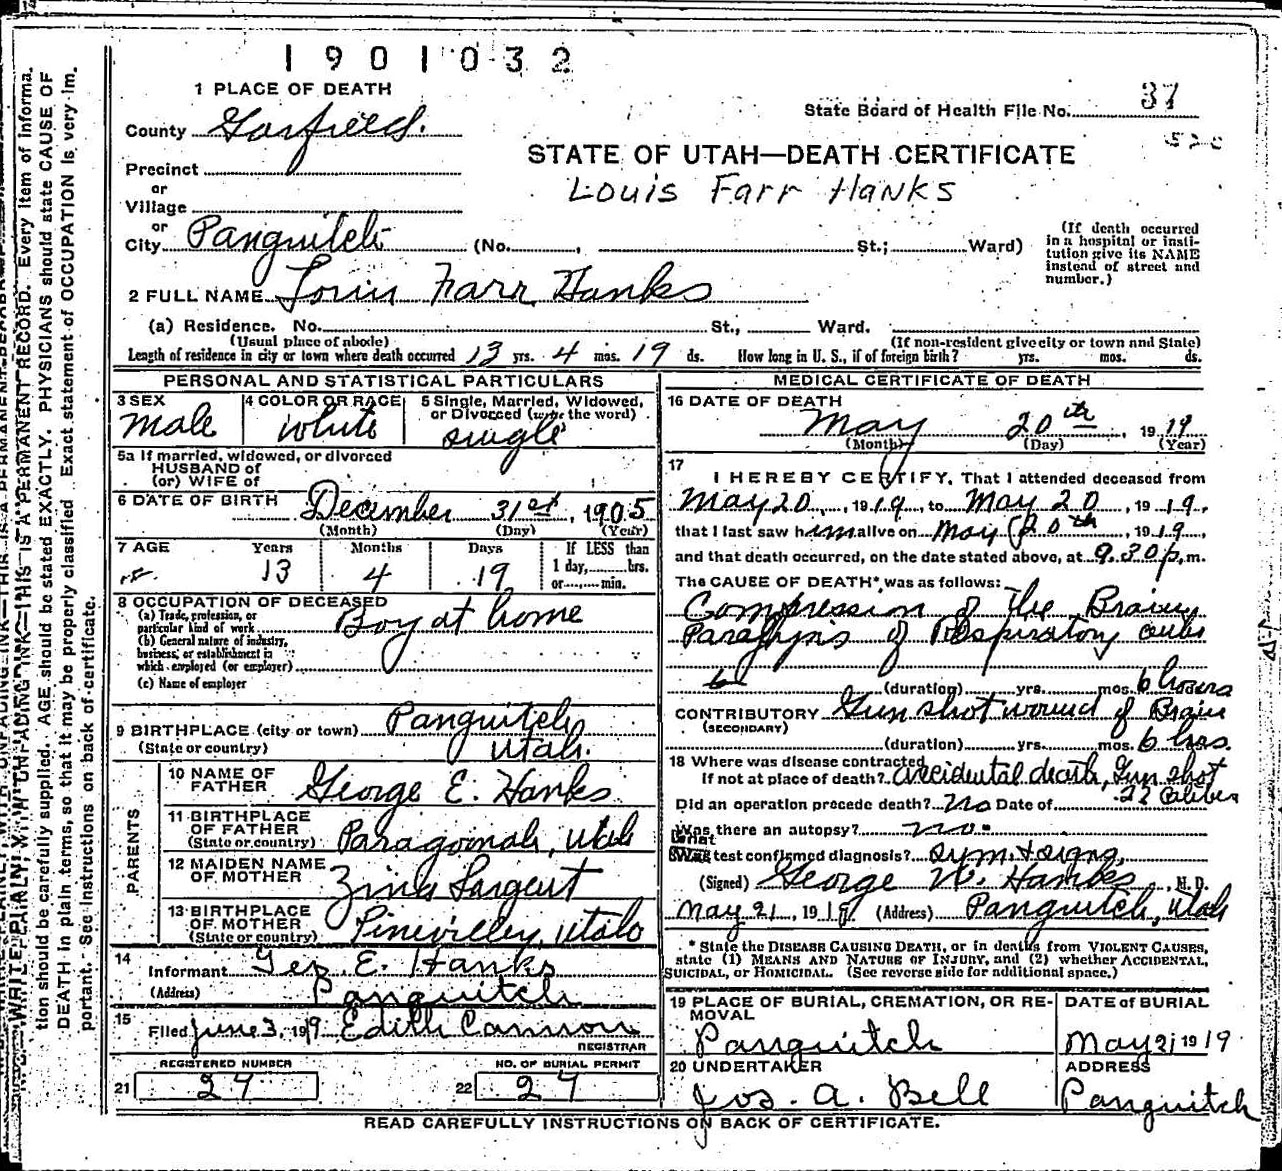 1901032
1 PLACE OF DEATH
State Board of Health File No. 37
County Garfield.
STATE OF UTAH—DEATH CERTIFICATE
Precinct
Louis Farr Hanks
or
Village
or
City Panguitch (No. , St.; Ward)
(If death occurred in a hospital or institution give its NAME instead of street and number.)
2 FULL NAME Louis Farr Hanks
(a) Residence. No. St., Ward.
(Usual place of abode) (If non-resident give city or town and State)
Length of residence in city or town where death occurred 13 yrs. 4 mos. 19 ds. How long in U. S., if of foreign birth? yrs. mos. ds.
PERSONAL AND STATISTICAL PARTICULARS
3 SEX
male
4 COLOR OR RACE
white
5 Single, Married, Widowed, or Divorced (write the word)
single
5a If married, widowed, or divorced
HUSBAND of
(or) WIFE of
6 DATE OF BIRTH December 31st, 1905
(Month) (Day) (Year)
7 AGE Years Months Days If LESS than
13 4 19 1 day, hrs.
or min.
8 OCCUPATION OF DECEASED
(a) Trade, profession, or particular kind of work Boy at home
(b) General nature of industry, business, or establishment in which employed (or employer)
(c) Name of employer
9 BIRTHPLACE (city or town) Panguitch
(State or country) Utah.
PARENTS
10 NAME OF FATHER George E. Hanks
11 BIRTHPLACE OF FATHER (State or country) Paragoonah, Utah
12 MAIDEN NAME OF MOTHER Zina Sargent
13 BIRTHPLACE OF MOTHER (State or country) Utah
14 Informant Geo. E. Hanks
(Address) Panguitch
15 Filed June 3, 1919 Edith Cannon
REGISTRAR
REGISTERED NUMBER NO. OF BURIAL PERMIT
21 27 22 27
MEDICAL CERTIFICATE OF DEATH
16 DATE OF DEATH
May 20th, 1919
(Month) (Day) (Year)
17 I HEREBY CERTIFY, That I attended deceased from
May 20, 1919, to May 20, 1919,
that I last saw him alive on May 20th, 1919,
and that death occurred, on the date stated above, at 9.30 p. m.
The CAUSE OF DEATH* was as follows:
Compression of the Brain
Paralysis of Respiratory
(duration) yrs. mos. 6 hours
CONTRIBUTORY Gun shot wound of Brain
(SECONDARY)
(duration) yrs. mos. 6 hrs.
18 Where was disease contracted
if not at place of death? accidental death, Gun shot
.22 Caliber
Did an operation precede death? no Date of
Was there an autopsy? no.
What test confirmed diagnosis? sym. & signs,
(Signed) George W. Hanks, M.D.
May 21, 1919 (Address) Panguitch, Utah
* State the DISEASE CAUSING DEATH, or in deaths from VIOLENT CAUSES,
state (1) MEANS AND NATURE OF INJURY, and (2) whether ACCIDENTAL,
SUICIDAL, or HOMICIDAL. (See reverse side for additional space.)
19 PLACE OF BURIAL, CREMATION, OR REMOVAL
Panguitch
DATE of BURIAL
May 21 1919
20 UNDERTAKER
Jos. A. Bell
ADDRESS
Panguitch
READ CAREFULLY INSTRUCTIONS ON BACK OF CERTIFICATE.
THIS IS A PERMANENT RECORD. Every item of informa-
tion should be carefully supplied. AGE should be stated EXACTLY. PHYSICIANS should state CAUSE OF
DEATH in plain terms, so that it may be properly classified. Exact statement of OCCUPATION is very im-
portant. See instructions on back of certificate.